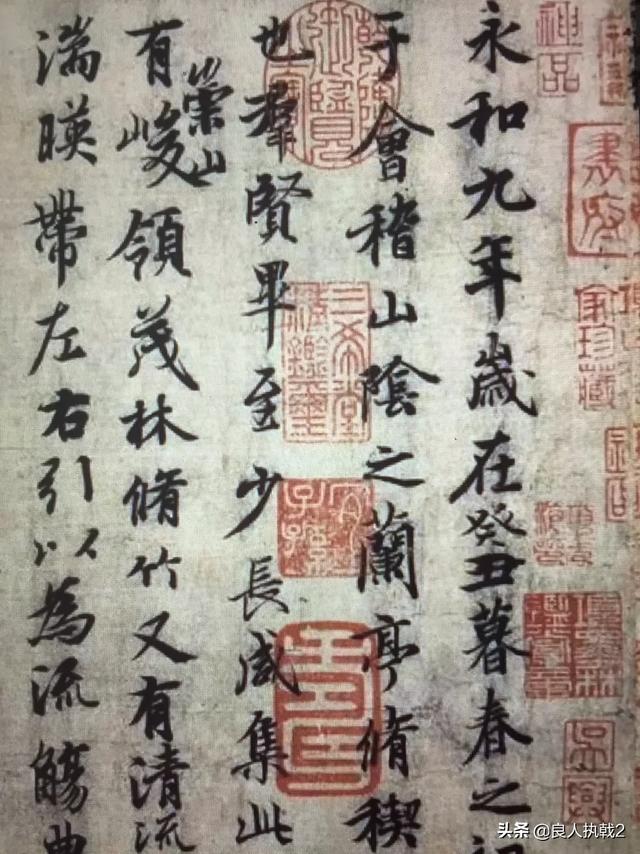 永和九年歲在癸丑暮春之初
于會稽山陰之蘭亭脩稧
也羣賢畢至少長咸集此
有崇山峻領茂林脩竹又有清流
湍暎帶左右引以為流觴曲
神品
三希堂精鑑璽
宜子孫
头条 @良人执戟2